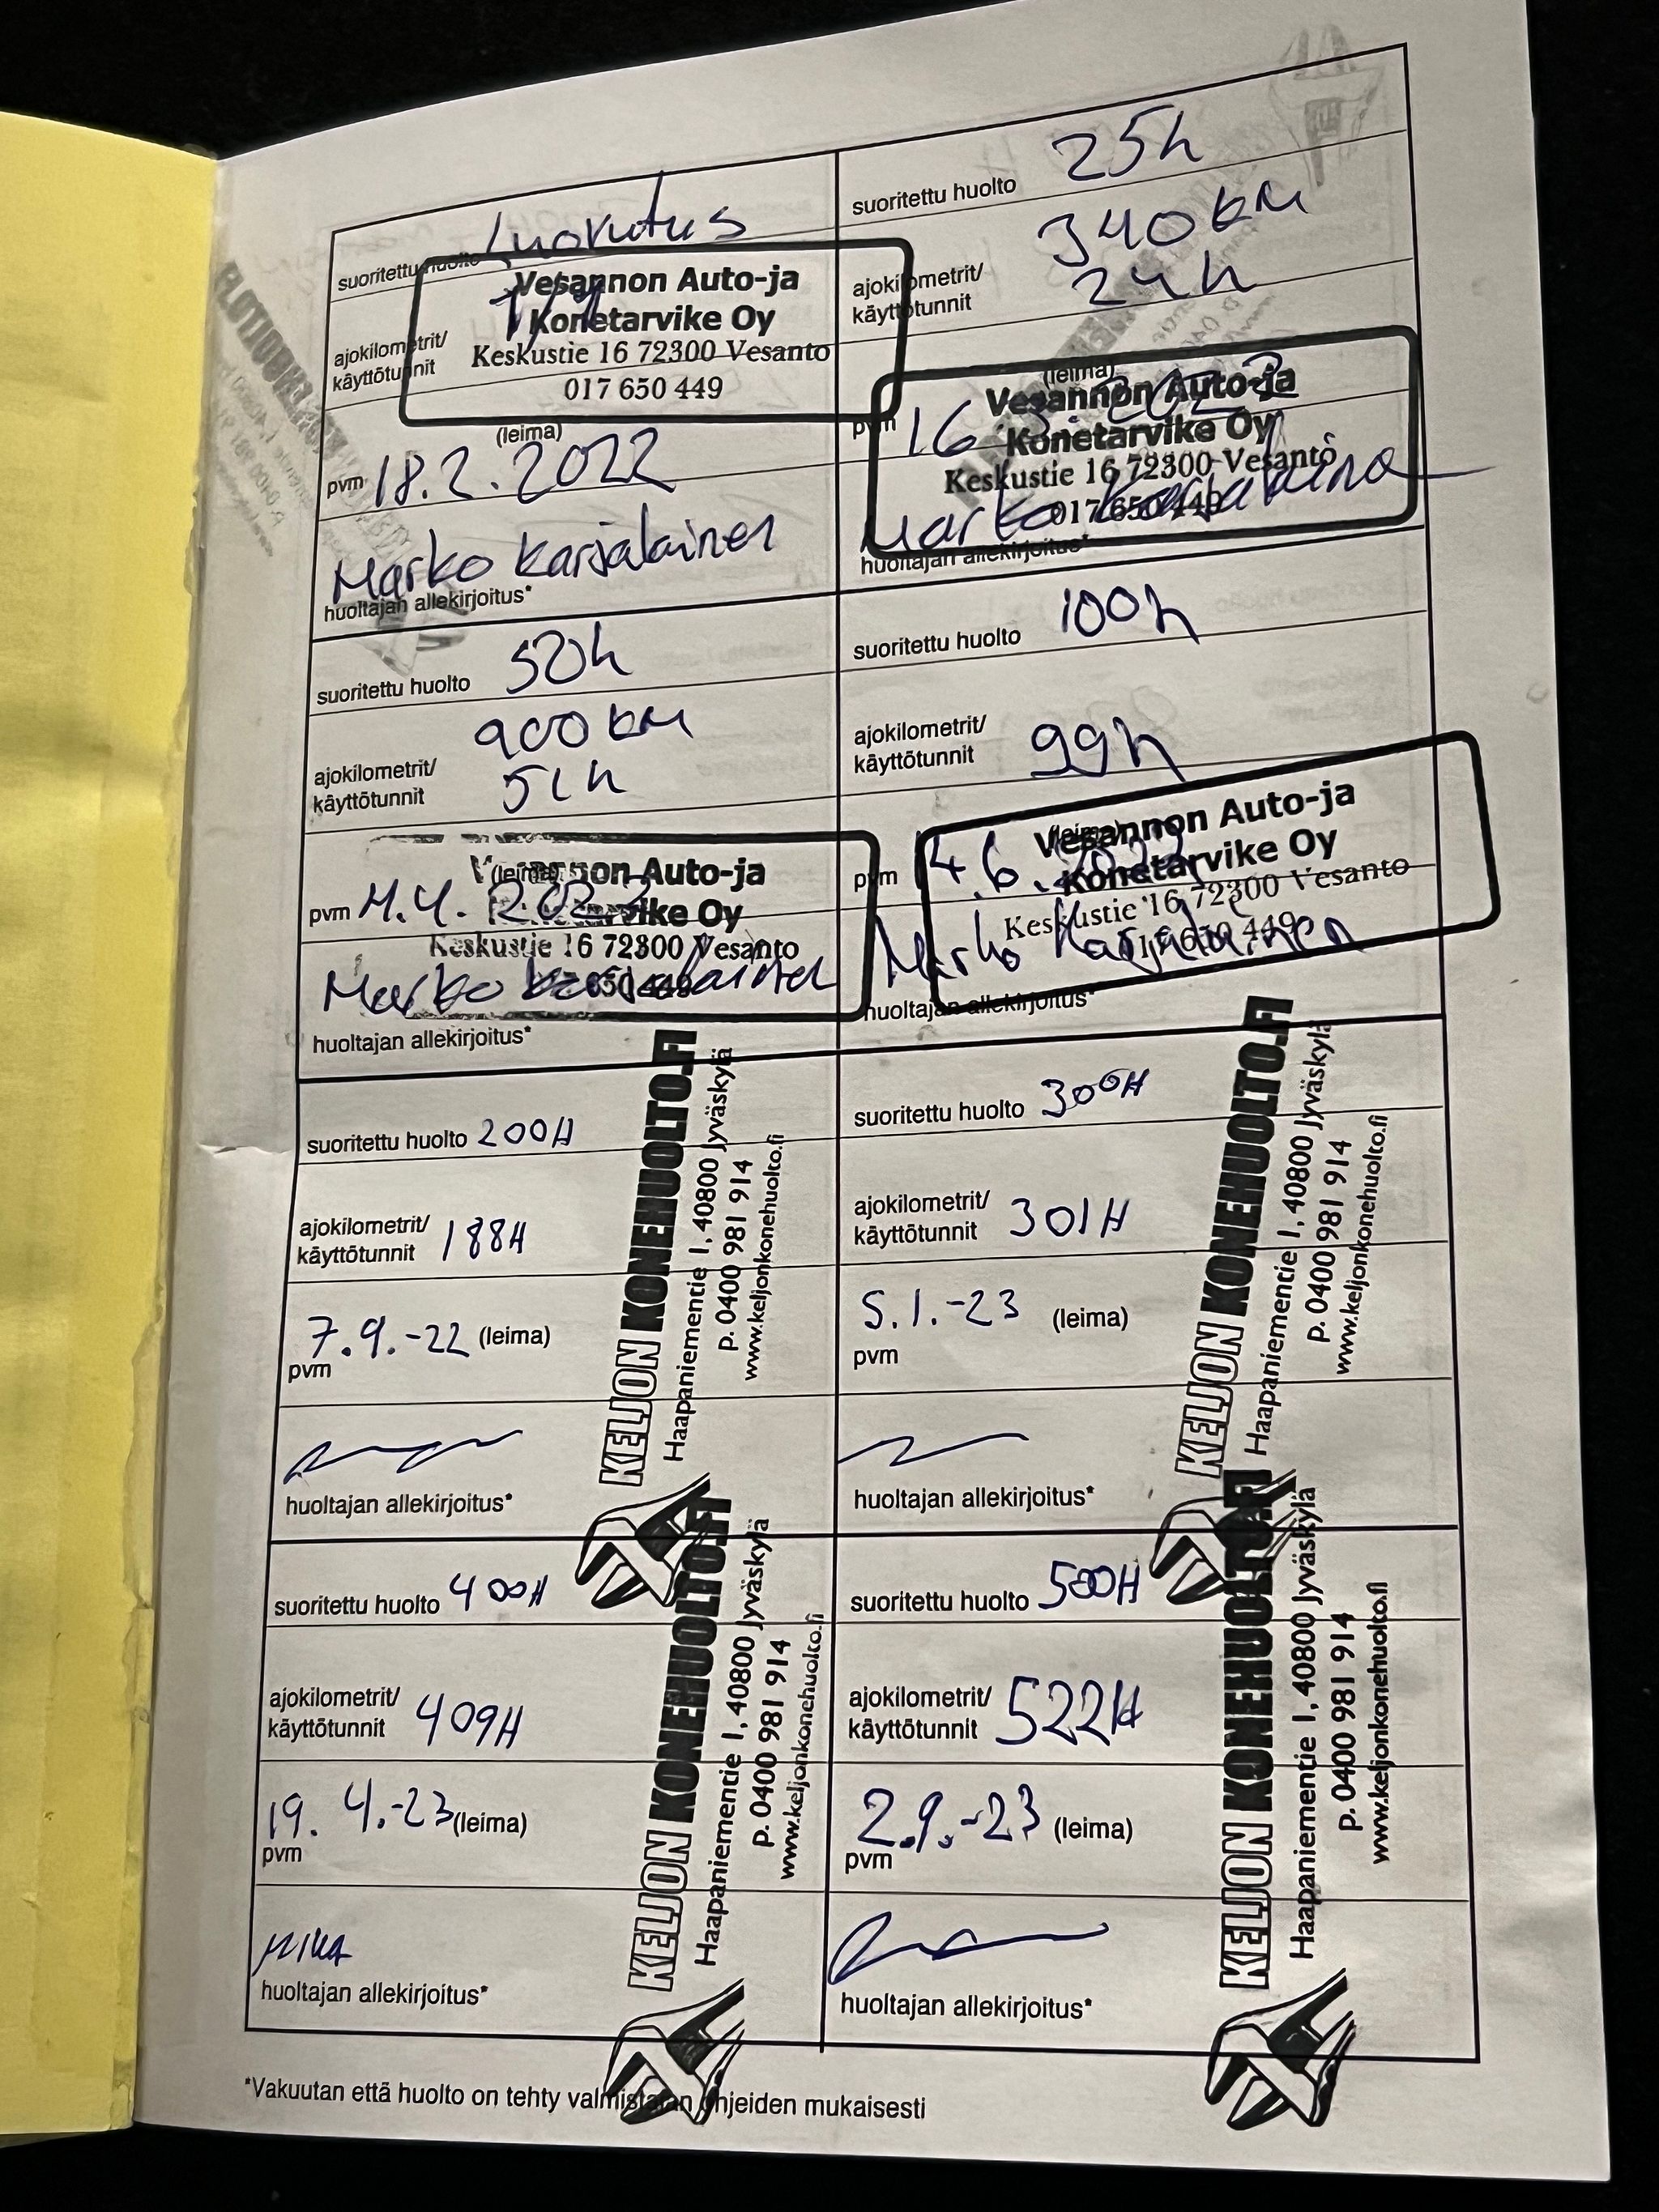 suoritettu huolto Luovutus
ajokilometrit/
käyttötunnit
Vesannon Auto-ja
Konetarvike Oy
Keskustie 16 72300 Vesanto
017 650 449
(leima)
pvm 18.2.2022
Marko Karjalainen
huoltajan allekirjoitus*
suoritettu huolto 25h
ajokilometrit/ 340 km
käyttötunnit 24h
(leima)
Vesannon Auto-ja
Konetarvike Oy
Keskustie 16 72300 Vesanto
017 650 449
pvm 16
Marko
huoltajan allekirjoitus*
suoritettu huolto 50h
900 km
ajokilometrit/
käyttötunnit 51h
(leima)
Vesannon Auto-ja
Konetarvike Oy
Keskustie 16 72300 Vesanto
650 449
pvm
Marko Karjalainen
huoltajan allekirjoitus*
suoritettu huolto 100h
ajokilometrit/
käyttötunnit 99h
(leima)
Vesannon Auto-ja
Konetarvike Oy
Keskustie 16 72300 Vesanto
pvm 14.6.
Marko Karjalainen
huoltajan allekirjoitus*
suoritettu huolto 200H
ajokilometrit/
käyttötunnit 188H
7.9.-22 (leima)
pvm
huoltajan allekirjoitus*
KELJON KONEHUOLTO.FI
Haapaniementie 1, 40800 Jyväskylä
p. 0400 981 914
www.keljonkonehuolto.fi
suoritettu huolto 300H
ajokilometrit/
käyttötunnit 301H
5.1.-23 (leima)
pvm
huoltajan allekirjoitus*
KELJON KONEHUOLTO.FI
Haapaniementie 1, 40800 Jyväskylä
p. 0400 981 914
www.keljonkonehuolto.fi
suoritettu huolto 400H
ajokilometrit/
käyttötunnit 409H
19. 4.-23 (leima)
pvm
huoltajan allekirjoitus*
KELJON KONEHUOLTO.FI
Haapaniementie 1, 40800 Jyväskylä
p. 0400 981 914
www.keljonkonehuolto.fi
suoritettu huolto 500H
ajokilometrit/
käyttötunnit 522H
2.9.-23 (leima)
pvm
huoltajan allekirjoitus*
KELJON KONEHUOLTO.FI
Haapaniementie 1, 40800 Jyväskylä
p. 0400 981 914
www.keljonkonehuolto.fi
*Vakuutan että huolto on tehty valmistajan ohjeiden mukaisesti